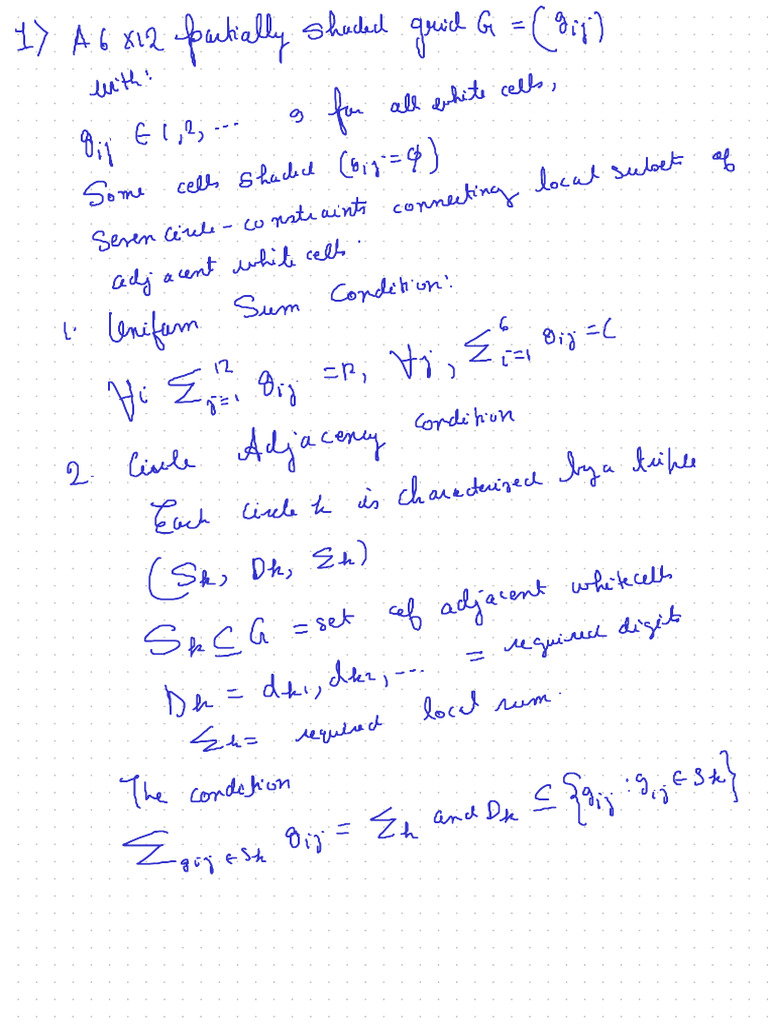 1) A 6 x12 partially shaded grid G = (g_ij)
with:
g_ij ∈ 1, 2, ... 9 for all white cells,
Some cells shaded (g_ij = ϕ)
Seven circle-constraints connecting local subsets of
adjacent white cells.
1. Uniform Sum Condition:
∀i Σ_{j=1}^{12} g_ij = R, ∀j, Σ_{i=1}^{6} g_ij = C
2. Circle Adjacency condition
Each circle k is characterized by a triple
(S_k, D_k, Σ_k)
S_k ⊆ G = set of adjacent white cells
D_k = d_k1, d_k2, ... = required digits
Σ_k = required local sum.
The condition
Σ_{g_ij ∈ S_k} g_ij = Σ_k and D_k ⊆ {g_ij : g_ij ∈ S_k}